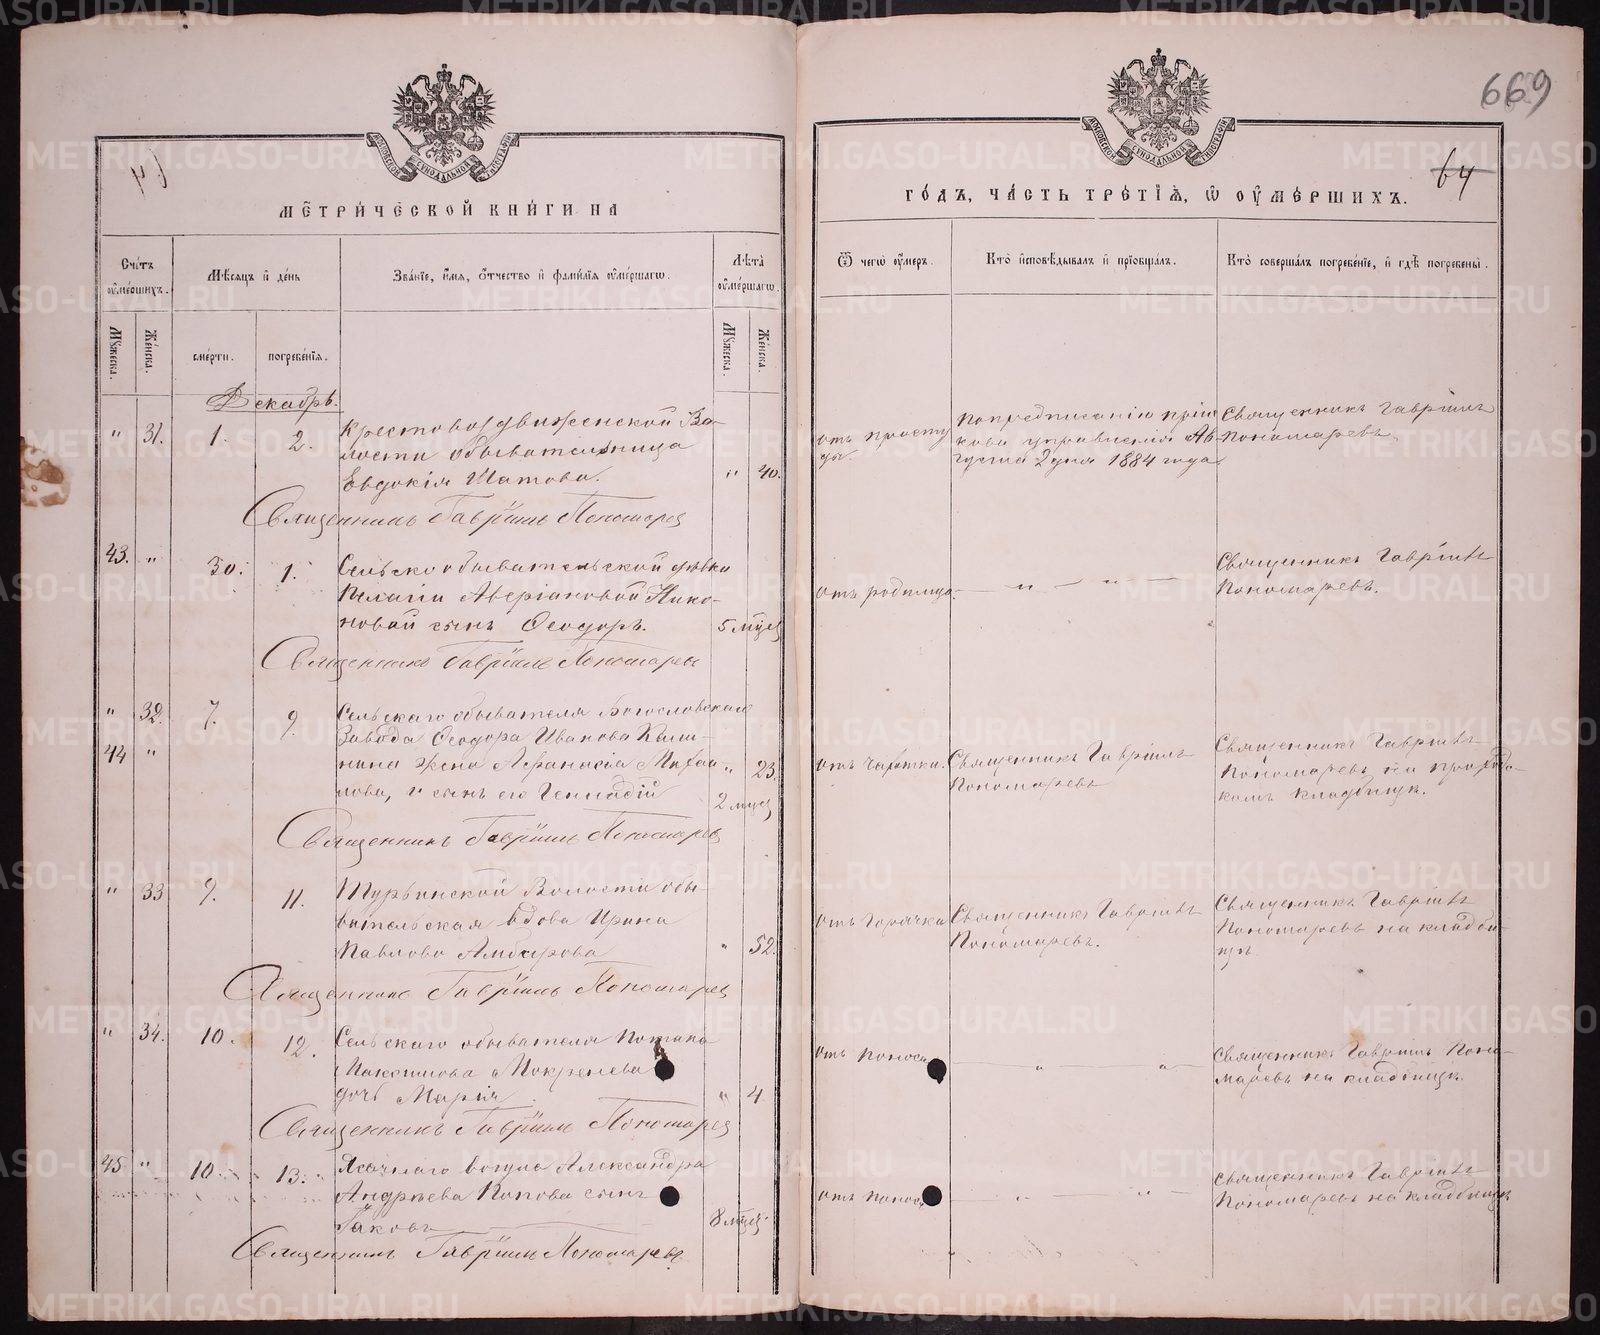 669
64
МЕТРИЧЕСКОЙ КНИГИ НА
ГОДЪ, ЧАСТЬ ТРЕТІЯ, Ѿ ОУМЕРШИХЪ.
Счетъ оумершихъ.
Мѣсяцъ и день
Званіе, имя, отчество и фамилія оумершагѡ.
Лѣта оумершагѡ.
Мужеска.
Женска.
смерти.
погребенія.
Мужеска.
Женска.
Ѿ чегѡ оумеръ.
Кто исповѣдывалъ и пріобщалъ.
Кто совершалъ погребеніе, и гдѣ погребены.
Декабрь.
" 31. 1. 2. Крестовоздвиженской Во-
лости обывательница
Евдокія Шатова. " 40.
отъ просту
ды.
По предписанію
управленія Ав-
густа 2 дня 1884 года
Священникъ Гавріилъ
Пономаревъ.
Священникъ Гавріилъ Пономарев
43. " 30. 1. Сельскообывательской дѣвки
Пелагіи Аверіановой Нико-
новой сынъ Ѳеодоръ. 5 мѣсц
отъ родимца. — " — " —
Священникъ Гавріилъ
Пономаревъ.
Священникъ Гавріилъ Пономаревъ
" 32. 7. 9. Сельскаго обывателя Богословскаго
44 " Завода Ѳеодора Иванова
жена Аѳанасія Михаи- " 23.
лова, и сынъ его Геннадій 2 мѣсц
отъ чахотки.
Священникъ Гавріилъ
Пономаревъ
Священникъ Гавріилъ
Пономаревъ на приход-
комъ кладбищѣ.
Священникъ Гавріилъ Пономарев
" 33 9. 11. Турьинской Волости обы-
вательская вдова Ирина
Павлова Амбарова " 52.
отъ горячки
Священникъ Гавріилъ
Пономаревъ.
Священникъ Гавріилъ
Пономаревъ на кладби-
щѣ
Священникъ Гавріилъ Пономарев
" 34. 10. 12. Сельскаго обывателя Потапа
Максимова Мокрецева
дочь Марія. " 4
отъ поноса — " — " —
Священникъ Гавріилъ Поно-
маревъ на кладбищѣ
Священникъ Гавріилъ Пономарев
45. " 10. 13. Ясачнаго вогула Александра
Андреева Попова сынъ
Іаковъ 8 мѣсц.
отъ поноса — " — " —
Священникъ Гавріилъ
Пономаревъ на кладбищѣ
Священникъ Гавріилъ Пономаревъ
METRIKI.GASO-URAL.RU